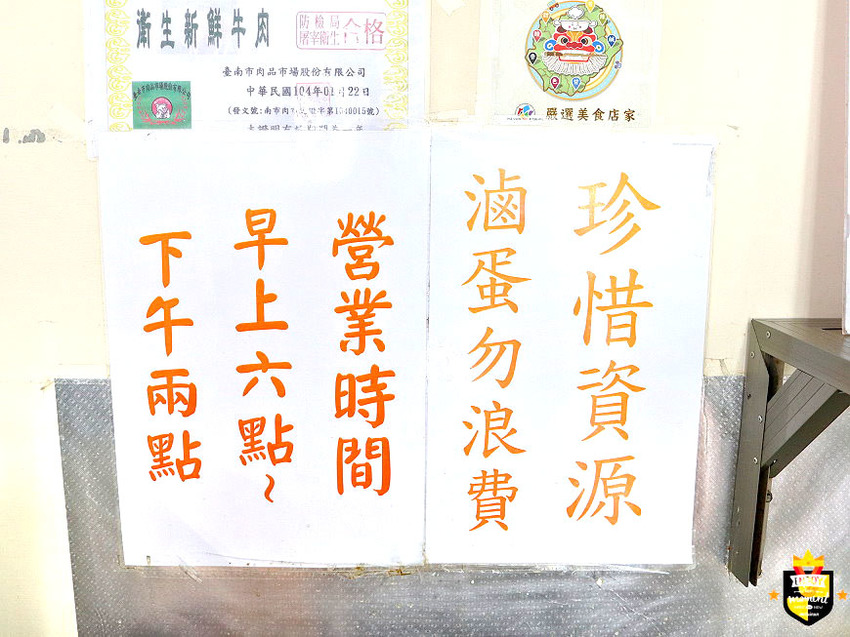 衛生新鮮牛肉
防檢局
屠宰衛生合格
臺南市肉品市場股份有限公司
中華民國104年01月22日
臺南市肉品市場股份有限公司
嚴選美食店家
珍惜資源
滷蛋勿浪費
營業時間
早上六點~
下午兩點
moment